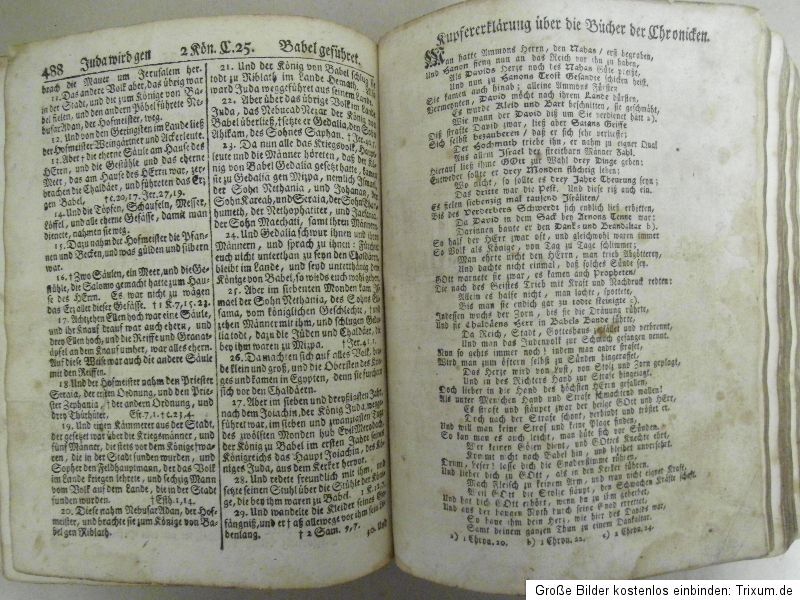 488 Juda wird gen 2 Kön. C. 25. Babel geführet.
brach die Mauer um Jerusalem her.
11. Das andere Volk aber, das übrig war
in der Stadt, und die zum Könige von Ba-
bel fielen, und den andern Pöbel führete Ne-
busarAdan, der Hofmeister, weg.
12. Und von den Geringsten im Lande ließ
der Hofmeister Weingärtner und Ackerleute.
13. Aber † die eherne Säule am Hause des
HErrn, und die Gestühle und das eherne
Meer, das am Hause des HErrn war, zer-
brachen die Chaldäer, und führeten das Erz
gen Babel. † c. 20, 17. Jer. 27, 19.
14. Und die Töpfen, Schaufeln, Messer,
Löffel, und alle eherne Gefässe, damit man
dienete, nahmen sie weg.
15. Dazu nahm der Hofmeister die Pfan-
nen und Becken, und was gülden und silbern
war.
16. † Zwo Säulen, ein Meer, und die Ge-
stühle, die Salomo gemacht hatte zum Hau-
se des HErrn. Es war nicht zu wägen
das Erz aller dieser Gefässe. † 1 K. 7, 15. 23.
17. Achtzehn Ellen hoch war eine Säule,
und ihr Knauf drauf war auch ehern, und
drey Ellen hoch, und die Reiffe und Granat-
äpfel an dem Knauf umher, war alles ehern.
Auf diese Weise war auch die andere Säule
mit den Reiffen.
18. Und der Hofmeister nahm den Priester
Seraia, der ersten Ordnung, und den Prie-
ster Zephania, † der andern Ordnung, und
drey Thürhüter. Esr. 7, 1. † c. 23, 4.
19. Und einen Kämmerer aus der Stadt,
der gesetzt war über die Kriegsmänner, und
fünf Männer, die stets vor dem Könige waren,
die in der Stadt funden wurden, und
Sopher den Feldhauptmann, der das Volk
im Lande kriegen lehrete, und sechzig Mann
vom Volk auf dem Lande, die in der Stadt
funden wurden. † Esth. 1, 14.
20. Diese nahm NebusarAdan, der Hof-
meister, und brachte sie zum Könige von Ba-
bel gen Riblath.
21. Und der König von Babel schlug sie
todt zu Riblath im Lande Hemath. Also
ward Juda weggeführt aus seinem Lande.
22. Aber über das übrige Volk im Lande
Juda, das NebucadNezar der König von
Babel überließ, setzte er Gedalia, den Sohn
Ahikam, des Sohnes Saphan.
23. Da nun alle das Kriegsvolk, Haupt-
leute und die Männer höreten, daß der König
von Babel Gedalia gesetzt hatte, kamen
sie zu Gedalia gen Mizpa, nemlich Ismael,
der Sohn Nethania, und Johanan, der
Sohn Kareah, und Seraia, der Sohn Than-
humeth, der Nethophatiter, und Jaesanja,
der Sohn Maechati, samt ihren Männern.
24. Und Gedalia schwur ihnen und ihren
Männern, und sprach zu ihnen: Fürchtet
euch nicht unterthan zu seyn den Chaldäern,
bleibet im Lande, und seyd unterthänig dem
Könige von Babel, so wirds euch wohl gehen.
25. Aber im siebenten Monden kam Is-
mael der Sohn Nethania, des Sohns Eli-
sama, vom königlichen Geschlecht, † und
zehen Männer mit ihm, und schlugen Geda-
lia todt, dazu die Jüden und Chaldäer, die
bey ihm waren zu Mizpa. † Jer. 41, 1.
26. Da machten sich auf alles Volk, bey-
de klein und groß, und die Obersten des Krie-
ges und kamen in Egypten, denn sie furchten
sich vor den Chaldäern.
27. Aber im sieben und dreyßigsten Jahr,
nach dem Joiachin, der König Juda, wegge-
führet war, im sieben und zwanzigsten Tage
des zwölften Monden hub EvilMerodach,
der König zu Babel im ersten Jahr seines
Königreichs das Haupt Joiachin, des Kö-
niges Juda, aus dem Kerker hervor.
28. Und redete freundlich mit ihm, und
setzte seinen Stuhl über die Stühle der Köni-
ge, die bey ihm waren zu Babel.
29. Und wandelte die Kleider seines Ge-
fängniß, und er † aß allewege vor ihm sein Le-
benlang. † 2 Sam. 9, 7. 30. Und
Kupfererklärung über die Bücher der Chronicken.
Man hatte Ammons Herrn, den Nahas / erst begraben,
Und Hanon fieng nun an das Reich vor ihn zu haben,
Als Davids Herze noch des Nahas Güte preist,
Und nun zu Hanons Trost Gesandte schicken heist.
Sie kamen auch hinab; alleine Ammons Fürsten
Vermeynten, David möcht nach ihrem Lande dürsten,
Es wurde Kleid und Bart beschnitten, sie geschmäht,
Wie wann der David diß um Sie verdienet hätt a).
Diß strafte David zwar, ließ aber Satans Griffe
Sich selbst bezaubern / daß er sich sehr verliefe:
Der Hochmuth triebe ihn, er nahm zu eigner Qual
Aus allem Israel der streitbarn Männer Zahl.
Hierauf ließ ihme GOtt zur Wahl drey Dinge geben:
Entweder sollte er drey Monden flüchtig leben:
Wo nicht, so sollte es drey Jahre Theurung seyn;
Das dritte war die Pest. Und diese riß auch ein.
Es fielen siebenzig mal tausend Israeliten/
Bis des Verderbers Schwerdt sich endlich ließ erbitten,
Da David in dem Sack bey Arnons Tenne war:
Darinnen baute er den Dank- und Brandaltar b).
So half der HErr zwar oft, und gleichwohl waren immer
So Volk als Könige, von Tag zu Tage schlimmer:
Man ehrte nicht den HErrn, man trieb Abgötterey,
Und dachte nicht einmal, daß solches Sünde sey.
GOtt warnete sie zwar, es kamen auch Propheten/
Die nach des Geistes Trieb mit Kraft und Nachdruck redten:
Allein es halfe nicht, man lachte, spottete,
Bis man sie endlich gar zu todte steinigte c).
Indessen wuchs der Zorn, bis sie die Dränung rührte,
Und sie Chaldäens Herr in Babels Bande führte,
Da Reich, Stadt, Gotteshaus gefället und verbrennt,
Und man das Judenvolk zur Schmach gefangen nennt.
Nun so gehts immer noch! indem man andre strafet,
Wird man zum öftern selbst zu Sünden hingeraffet,
Das Herze wird von Lust, von Stolz und Zorn geplagt,
Und in des Richters Hand zur Strafe hingesagt.
Doch lieber in die Hand des höchsten HErrn gefallen,
Als unter Menschen Hand und Strafe schmachtend wallen!
Es straft und stäupet zwar der heilge GOtt und HErr,
Doch nach der Strafe schont, verbindt und tröstet er.
Und will man keine Straf und keine Plage finden,
So kan man es auch leicht, man hüte sich vor Sünden.
Wer keinen Götzen dient, und GOttes Knechte ehrt,
Kommt nicht nach Babel hin, und bleibet unversehrt.
Drum, Leser! lasse dich die Gnadenstimme rühren,
Und lieber dich zu GOtt, als in den Kerker führen.
Mach Fleisch zu keinem Arm, und trau nicht eigner Kraft,
Weil GOtt die Stolze stäupt, den Schwachen Kräfte schafft.
Und hat dich GOtt erhört, wenn du zu ihm geberhet,
Und aus der bangen Noth durch seine Gnad errettet,
So baue ihm dein Herz, wie hier des Davids war,
Samt deinem ganzen Thun zu einem Dankaltar.
a) 1 Chron. 20. b) 1 Chron. 22. c) 2 Chron. 24.
Große Bilder kostenlos einbinden: Trixum.de